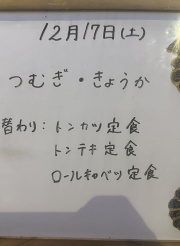 12月17日(土)
つむぎ・きょうか
替わり:トンカツ定食
トンテキ定食
ロールキャベツ定食